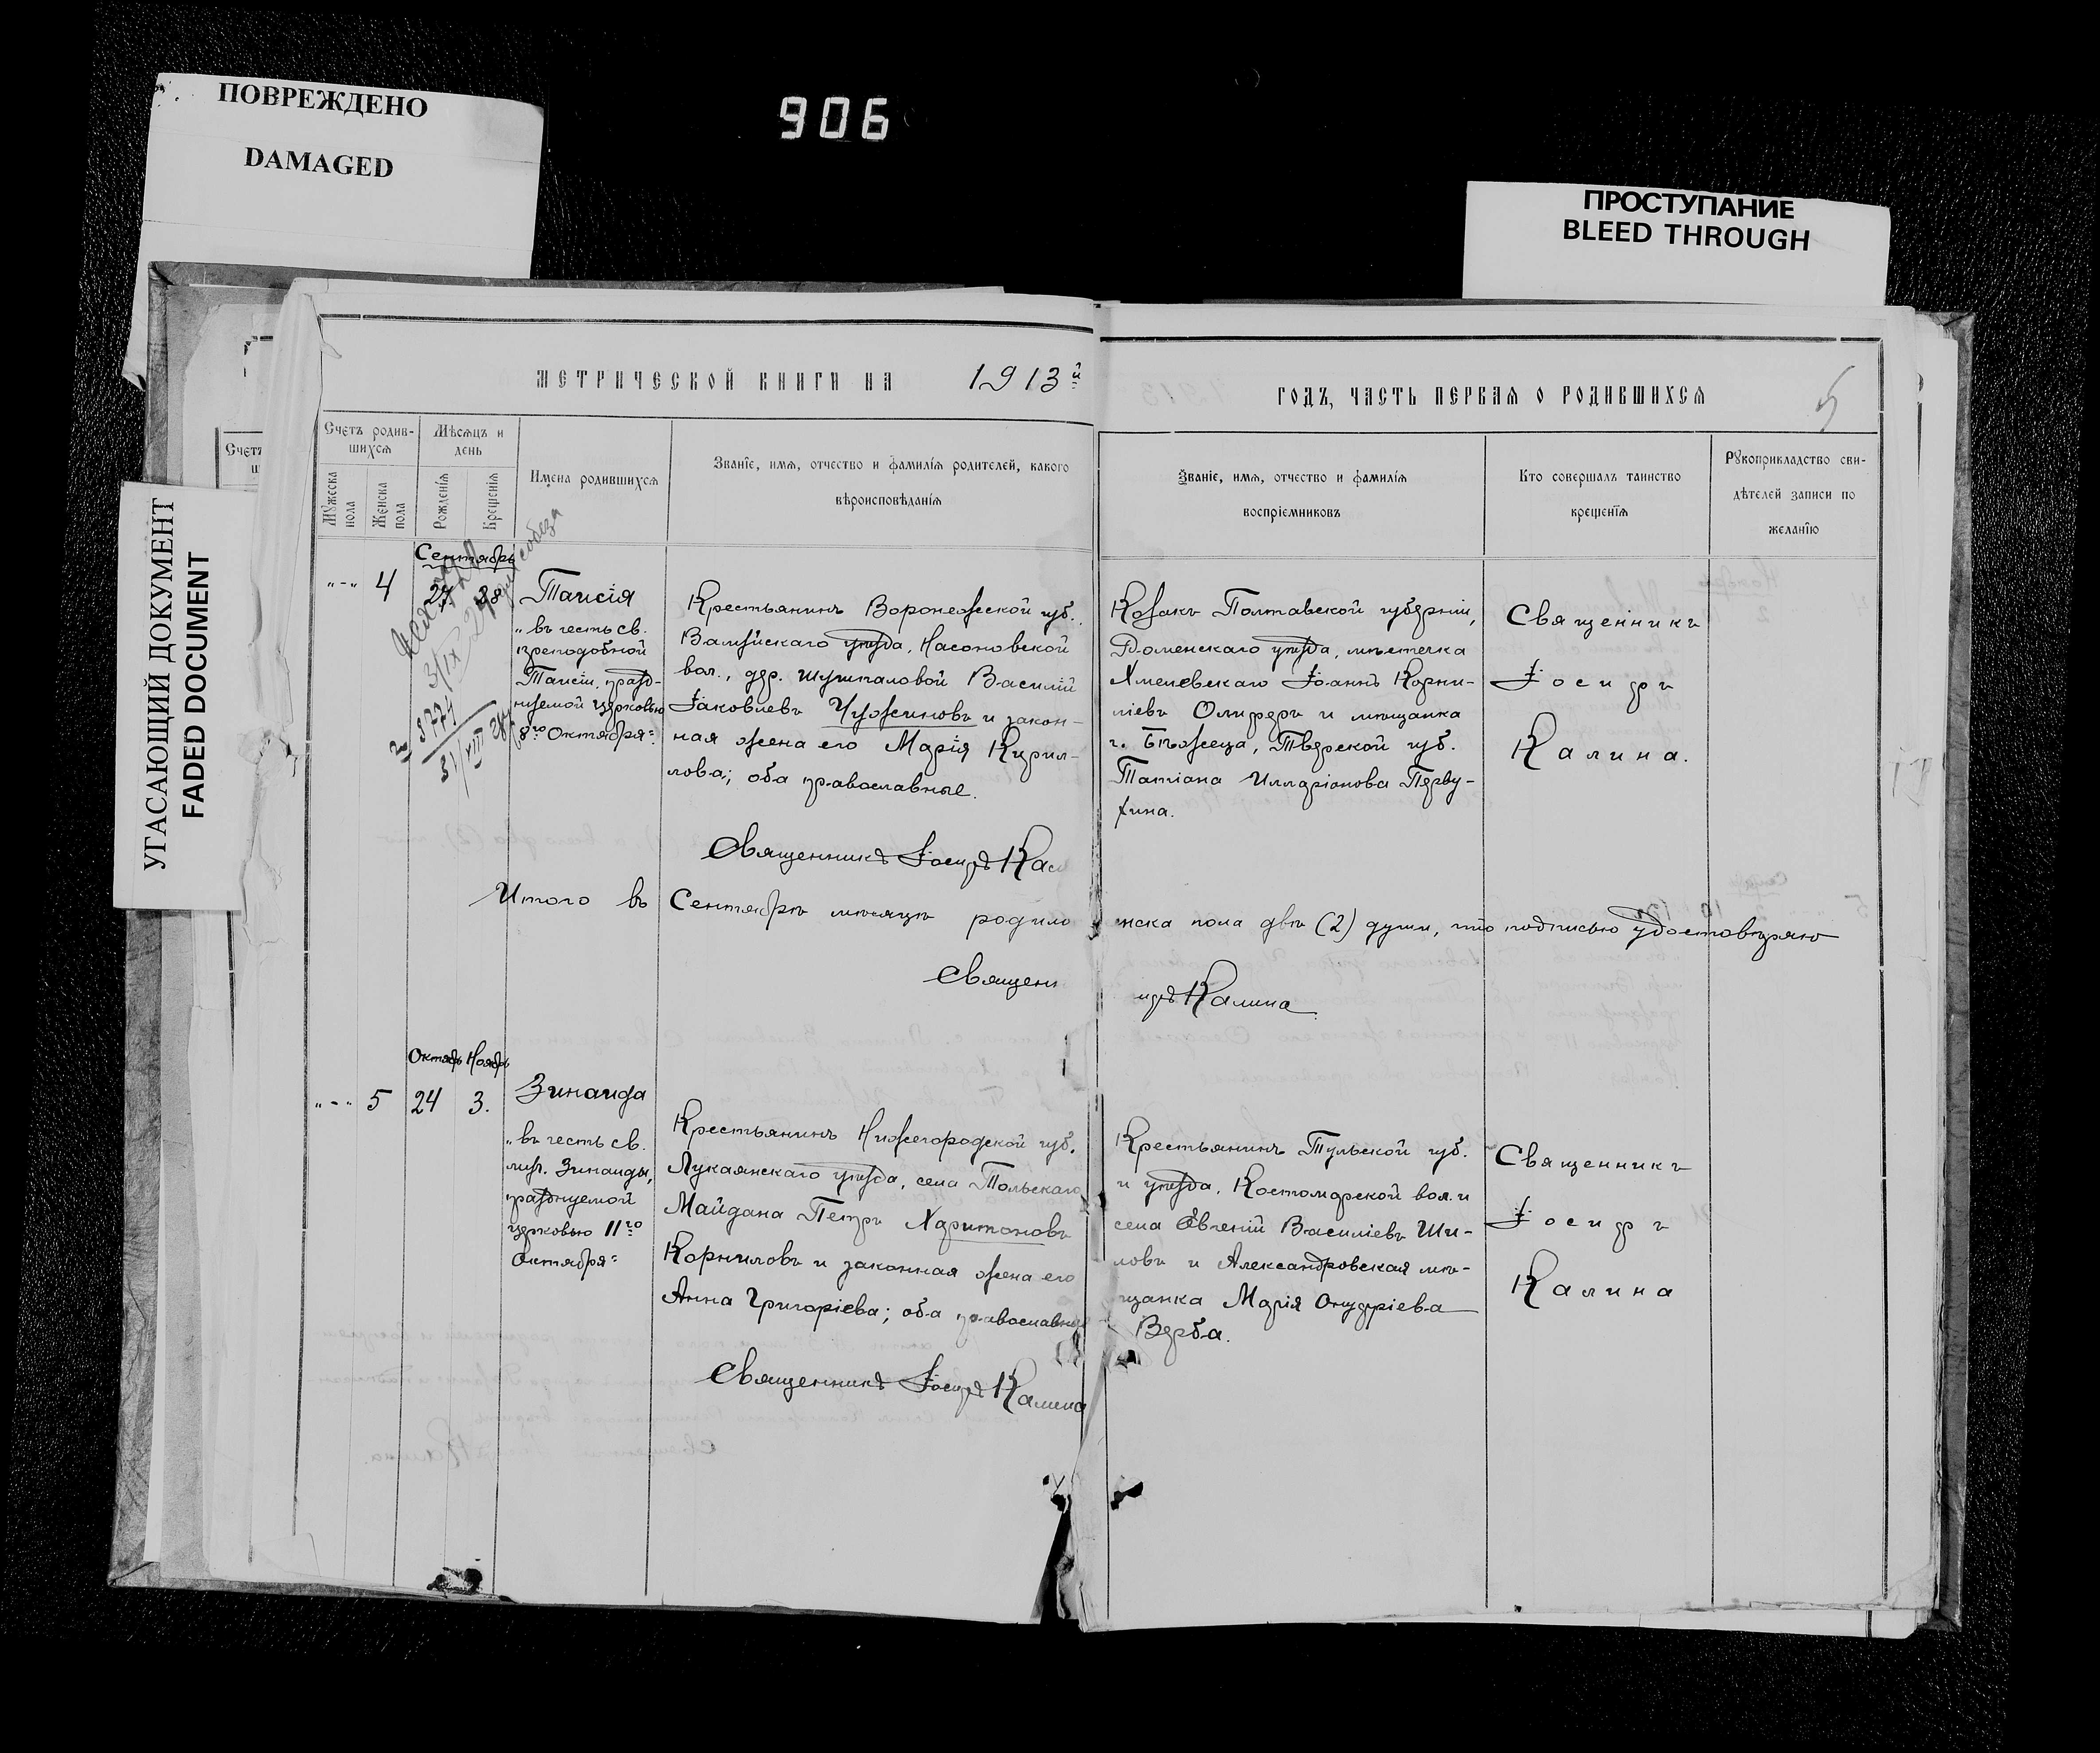 ПОВРЕЖДЕНО
DAMAGED
906
ПРОСТУПАНИЕ
BLEED THROUGH
УГАСАЮЩИЙ ДОКУМЕНТ
FADED DOCUMENT
МЕТРИЧЕСКОЙ КНИГИ НА 1913й
ГОДЪ, ЧАСТЬ ПЕРВАЯ О РОДИВШИХСЯ
5
Счетъ родив-
шихся
Мужеска
пола
Женска
пола
Мѣсяцъ и
день
Рожденія
Крещенія
Имена родившихся
Званіе, имя, отчество и фамилія родителей, какого
вѣроисповѣданія
Званіе, имя, отчество и фамилія
воспріемниковъ
Кто совершалъ таинство
крещенія
Рукоприкладство сви-
дѣтелей записи по
желанію
Сентябрь
"-" 4
28
Таисія
"въ честь св.
преподобной
Таисіи, празд-
нуемой церковью
8го Октября"
3774
Крестьянинъ Воронежской губ.,
Валуйскаго уѣзда, Насоновской
вол., дер. Шушпаловой Василій
Іаковлевъ Чужиновъ и закон-
ная жена его Марія Кирил-
лова; оба православные.
Священникъ Іосифъ Кал
Козакъ Полтавской губерніи,
Роменскаго уѣзда, мѣстечка
Хмелевскаго Іоаннъ Корни-
ліевъ Олиферъ и мѣщанка
г. Бѣжеца, Тверской губ.
Татіана Илларіонова Перву-
хина.
Священникъ
Іосифъ
Калина.
Итого въ Сентябрѣ мѣсяцѣ родило нска пола двѣ (2) души, что подписью удостовѣряю
Священ ифъ Калина
Октябрь Ноябрь
"-" 5 24 3.
Зинаида
"въ честь св.
муч. Зинаиды,
празднуемой
церковью 11го
Октября"
Крестьянинъ Нижегородской губ.
Лукаянскаго уѣзда, села Польскаго
Майдана Петръ Харитоновъ
Корниловъ и законная жена его
Анна Григоріева; оба православные
Священникъ Іосифъ Калина
Крестьянинъ Тульской губ.
и уѣзда, Костомарской вол. и
села Евгеній Василіевъ Ши-
ловъ и Александровская мѣ-
щанка Марія Онуфріева
Верба.
Священникъ
Іосифъ
Калина